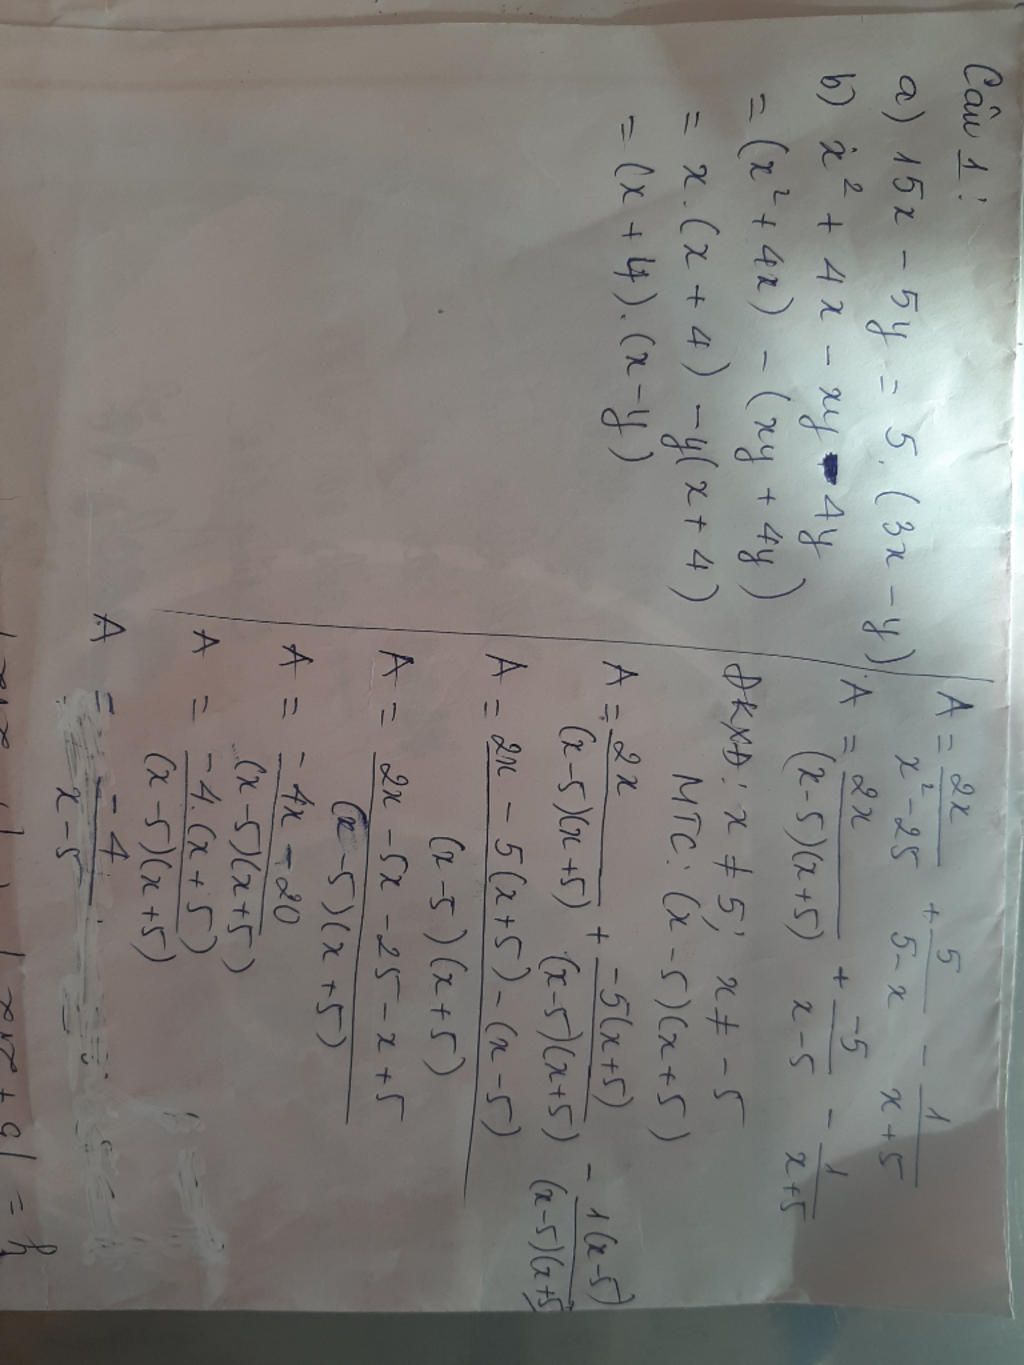 Câu 1:
a) 15x - 5y = 5.(3x - y)
b) x² + 4x - xy - 4y
= (x² + 4x) - (xy + 4y)
= x.(x + 4) - y(x + 4)
= (x + 4).(x - y)
A = 2x/(x² - 25) + 5/(5 - x) - 1/(x + 5)
A = 2x/((x - 5)(x + 5)) + -5/(x - 5) - 1/(x + 5)
ĐKXĐ: x ≠ 5; x ≠ -5
MTC: (x - 5)(x + 5)
A = 2x/((x - 5)(x + 5)) + -5(x + 5)/((x - 5)(x + 5)) - 1(x - 5)/((x - 5)(x + 5))
A = (2x - 5(x + 5) - (x - 5))/((x - 5)(x + 5))
A = (2x - 5x - 25 - x + 5)/((x - 5)(x + 5))
A = (-4x - 20)/((x - 5)(x + 5))
A = -4.(x + 5)/((x - 5)(x + 5))
A = -4/(x - 5)